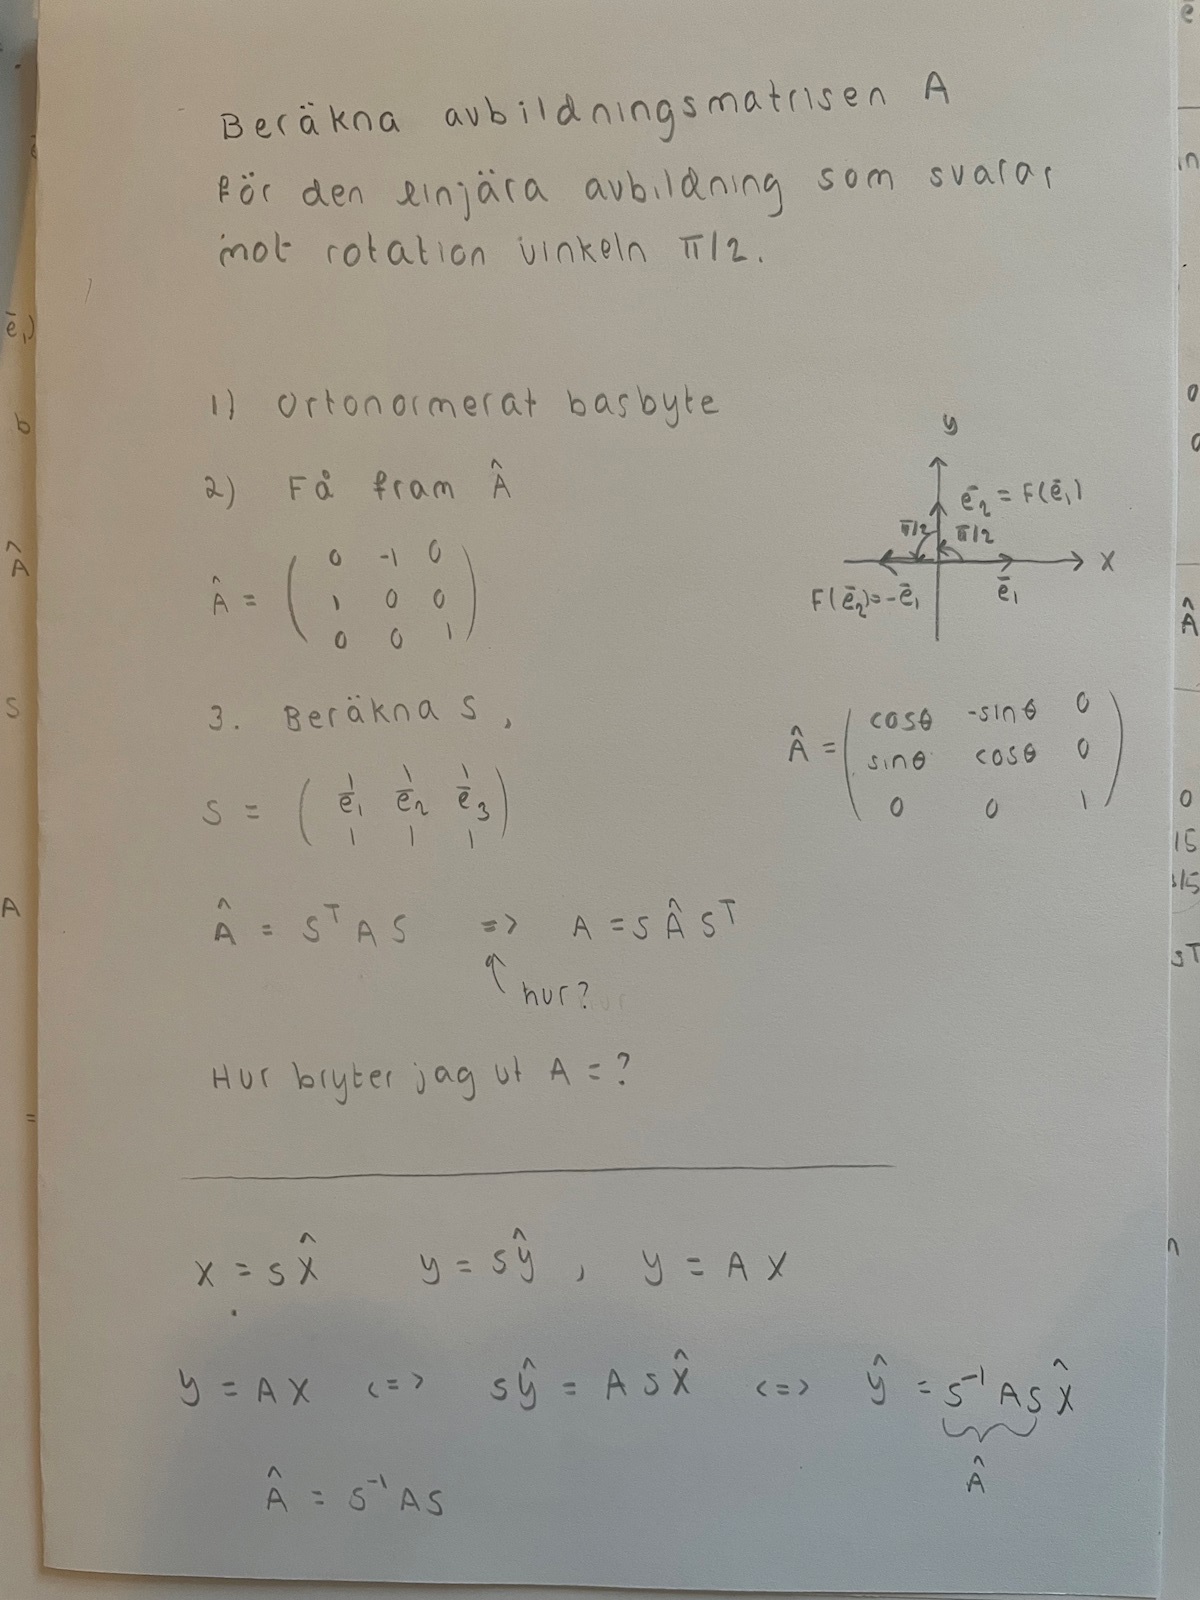 Beräkna avbildningsmatrisen A
för den linjära avbildning som svarar
mot rotation vinkeln π/2.
1) Ortonormerat basbyte
2) Få fram Â
Â = ( 0 -1 0
1 0 0
0 0 1 )
y
ē₂ = F(ē₁)
π/2 π/2
x
F(ē₂)=-ē₁ ē₁
3. Beräkna S,
S = ( ē₁ ē₂ ē₃ )
Â = ( cosθ -sinθ 0
sinθ cosθ 0
0 0 1 )
Â = Sᵀ A S => A = S Â Sᵀ
hur?
Hur bryter jag ut A = ?
x = s x̂ y = s ŷ , y = A x
y = A x <=> s ŷ = A s x̂ <=> ŷ = s⁻¹ A s x̂
Â
Â = s⁻¹ A s
ē₁)
b
Â
S
A
=
ē
in
0
Â
0
15
sᵀ